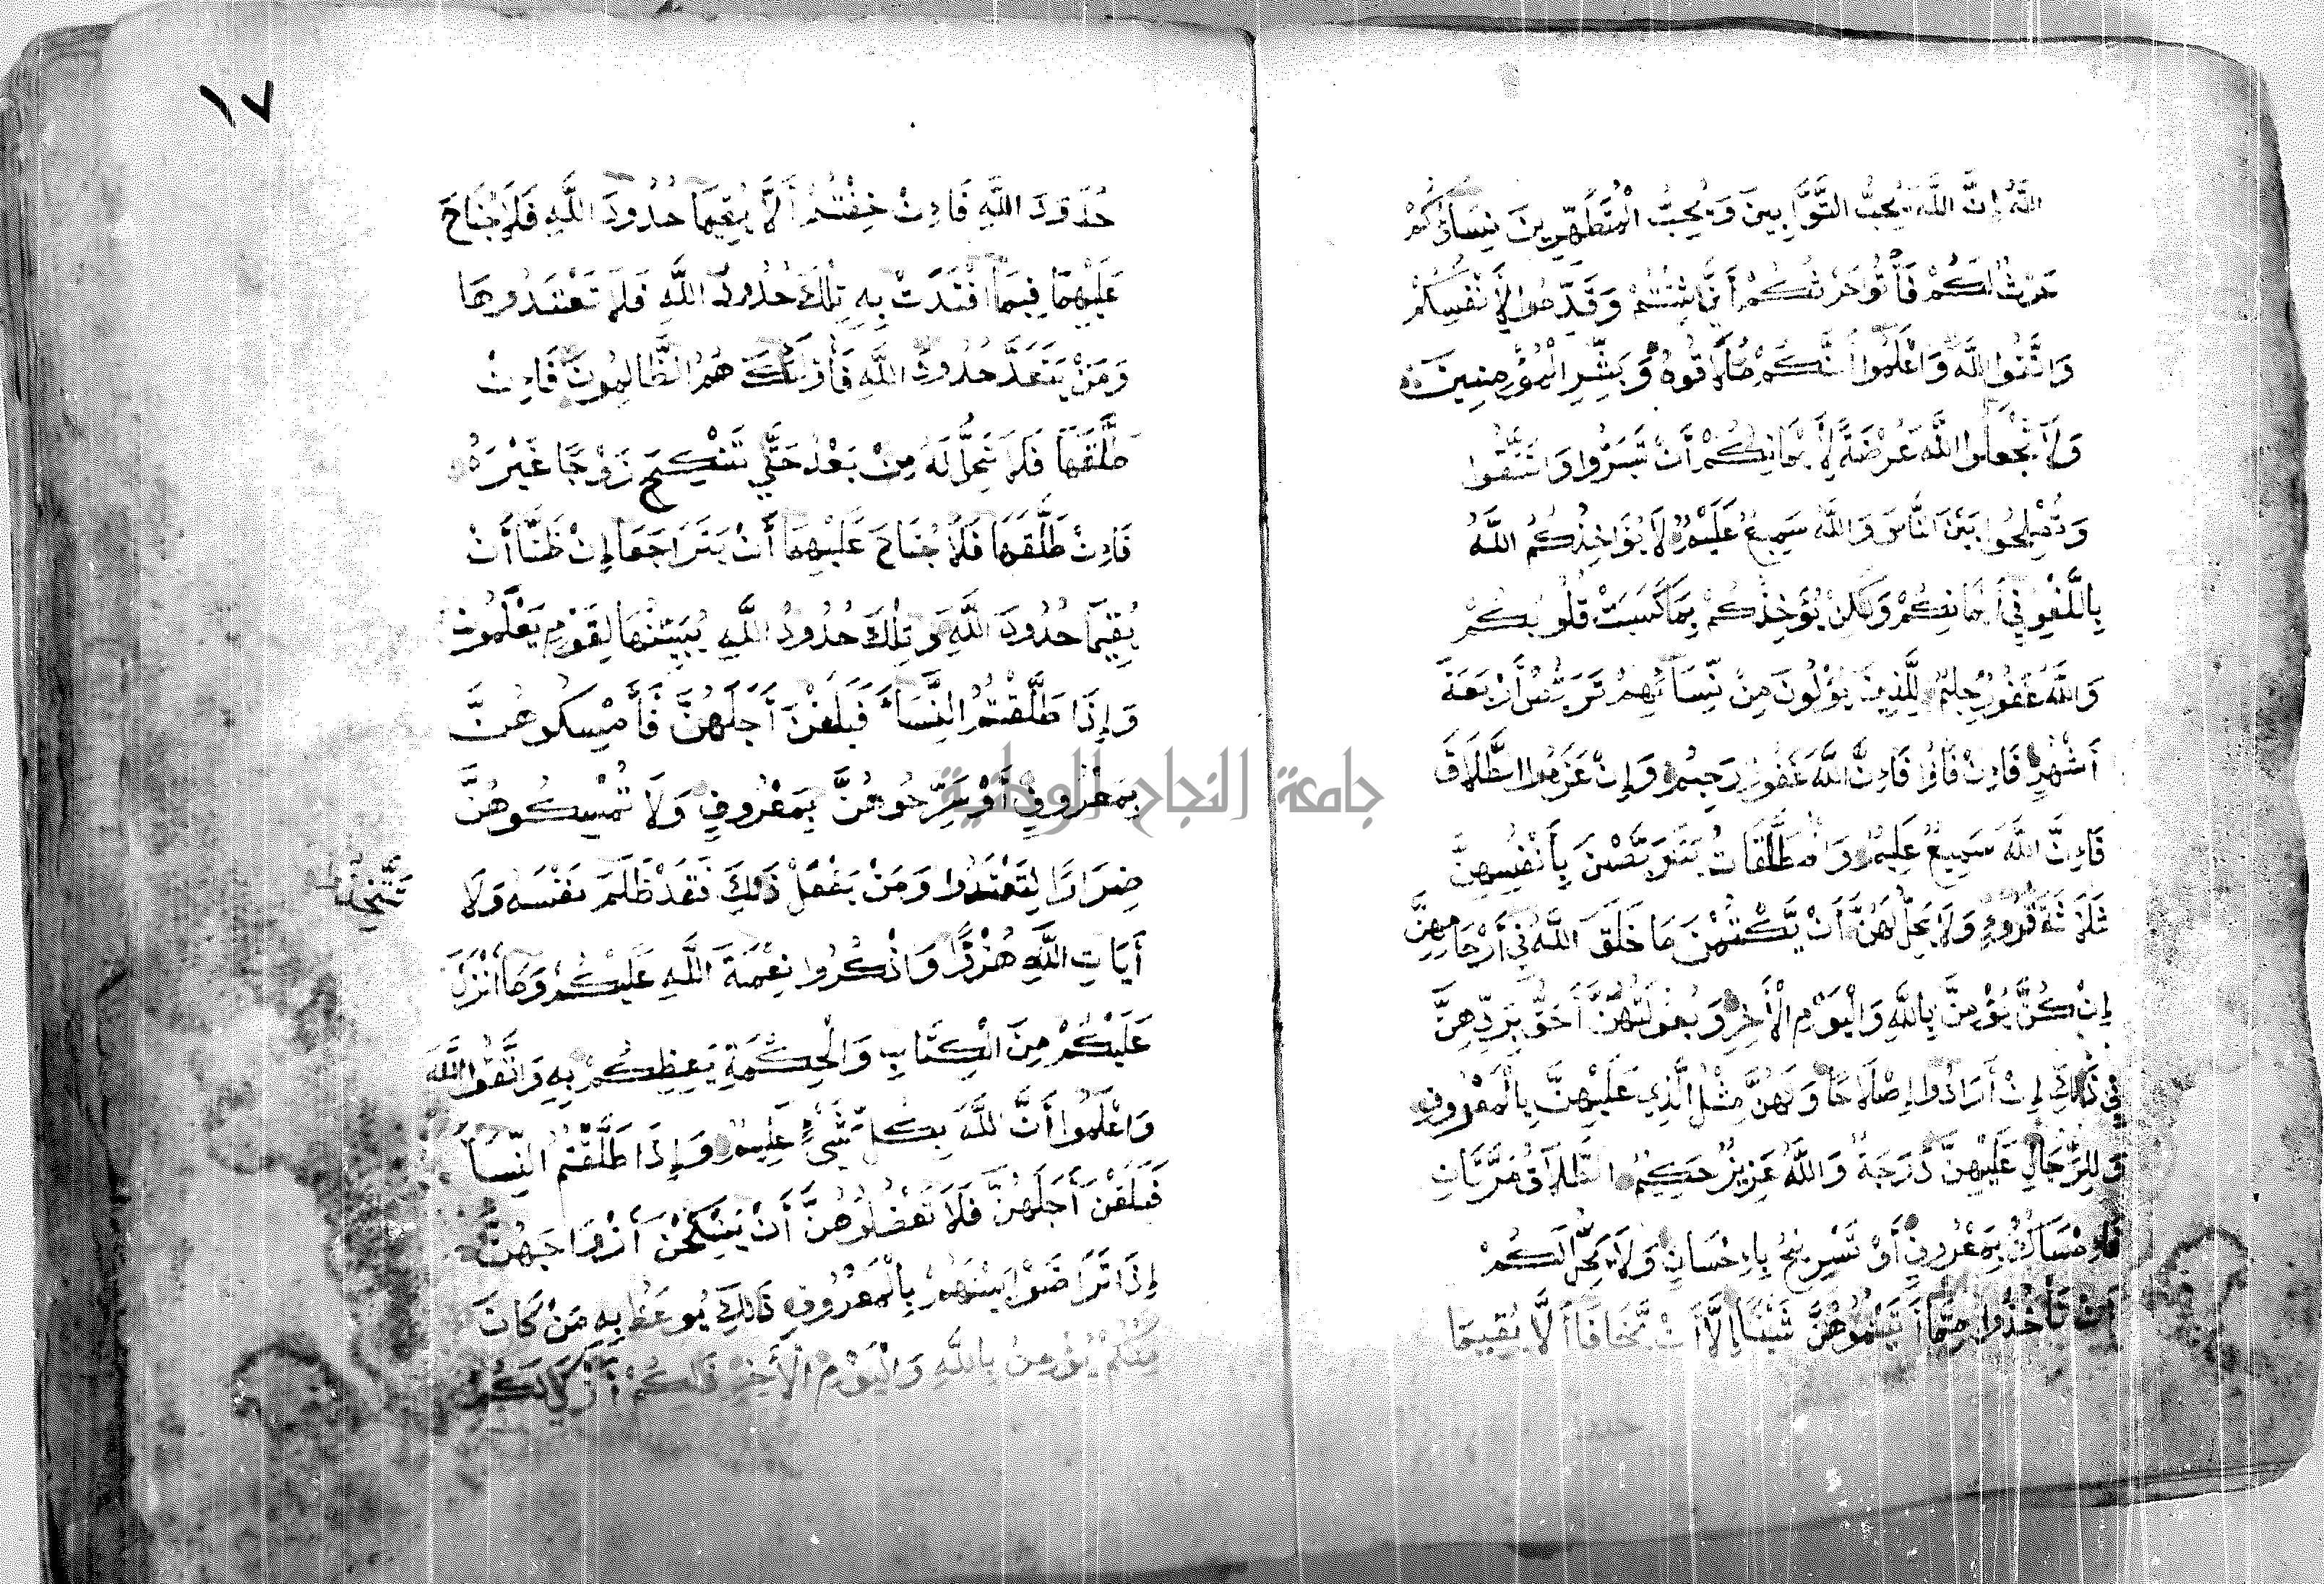 اللَّهُ إِنَّ اللَّهَ يُحِبُّ التَّوَّابِينَ وَيُحِبُّ الْمُتَطَهِّرِينَ نِسَاؤُكُمْ
حَرْثٌ لَكُمْ فَأْتُوا حَرْثَكُمْ أَنَّى شِئْتُمْ وَقَدِّمُوا لِأَنْفُسِكُمْ
وَاتَّقُوا اللَّهَ وَاعْلَمُوا أَنَّكُمْ مُلَاقُوهُ وَبَشِّرِ الْمُؤْمِنِينَ
وَلَا تَجْعَلُوا اللَّهَ عُرْضَةً لِأَيْمَانِكُمْ أَنْ تَبَرُّوا وَتَتَّقُوا
وَتُصْلِحُوا بَيْنَ النَّاسِ وَاللَّهُ سَمِيعٌ عَلِيمٌ لَا يُؤَاخِذُكُمُ اللَّهُ
بِاللَّغْوِ فِي أَيْمَانِكُمْ وَلَكِنْ يُؤَاخِذُكُمْ بِمَا كَسَبَتْ قُلُوبُكُمْ
وَاللَّهُ غَفُورٌ حَلِيمٌ لِلَّذِينَ يُؤْلُونَ مِنْ نِسَائِهِمْ تَرَبُّصُ أَرْبَعَةِ
أَشْهُرٍ فَإِنْ فَاءُوا فَإِنَّ اللَّهَ غَفُورٌ رَحِيمٌ وَإِنْ عَزَمُوا الطَّلَاقَ
فَإِنَّ اللَّهَ سَمِيعٌ عَلِيمٌ وَالْمُطَلَّقَاتُ يَتَرَبَّصْنَ بِأَنْفُسِهِنَّ
ثَلَاثَةَ قُرُوءٍ وَلَا يَحِلُّ لَهُنَّ أَنْ يَكْتُمْنَ مَا خَلَقَ اللَّهُ فِي أَرْحَامِهِنَّ
إِنْ كُنَّ يُؤْمِنَّ بِاللَّهِ وَالْيَوْمِ الْأَخِرِ وَبُعُولَتُهُنَّ أَحَقُّ بِرَدِّهِنَّ
فِي ذَلِكَ إِنْ أَرَادُوا إِصْلَاحًا وَلَهُنَّ مِثْلُ الَّذِي عَلَيْهِنَّ بِالْمَعْرُوفِ
وَلِلرِّجَالِ عَلَيْهِنَّ دَرَجَةٌ وَاللَّهُ عَزِيزٌ حَكِيمٌ الطَّلَاقُ مَرَّتَانِ
فَإِمْسَاكٌ بِمَعْرُوفٍ أَوْ تَسْرِيحٌ بِإِحْسَانٍ وَلَا يَحِلُّ لَكُمْ
أَنْ تَأْخُذُوا مِمَّا أَتَيْتُمُوهُنَّ شَيْئًا إِلَّا أَنْ يَخَافَا أَلَّا يُقِيمَا
١٧
حُدُودَ اللَّهِ فَإِنْ خِفْتُمْ أَلَّا يُقِيمَا حُدُودَ اللَّهِ فَلَا جُنَاحَ
عَلَيْهِمَا فِيمَا افْتَدَتْ بِهِ تِلْكَ حُدُودُ اللَّهِ فَلَا تَعْتَدُوهَا
وَمَنْ يَتَعَدَّ حُدُودَ اللَّهِ فَأُولَئِكَ هُمُ الظَّالِمُونَ فَإِنْ
طَلَّقَهَا فَلَا تَحِلُّ لَهُ مِنْ بَعْدُ حَتَّى تَنْكِحَ زَوْجًا غَيْرَهُ
فَإِنْ طَلَّقَهَا فَلَا جُنَاحَ عَلَيْهِمَا أَنْ يَتَرَاجَعَا إِنْ ظَنَّا أَنْ
يُقِيمَا حُدُودَ اللَّهِ وَتِلْكَ حُدُودُ اللَّهِ يُبَيِّنُهَا لِقَوْمٍ يَعْلَمُونَ
وَإِذَا طَلَّقْتُمُ النِّسَاءَ فَبَلَغْنَ أَجَلَهُنَّ فَأَمْسِكُوهُنَّ
بِمَعْرُوفٍ أَوْ سَرِّحُوهُنَّ بِمَعْرُوفٍ وَلَا تُمْسِكُوهُنَّ
ضِرَارًا لِتَعْتَدُوا وَمَنْ يَفْعَلْ ذَلِكَ فَقَدْ ظَلَمَ نَفْسَهُ وَلَا تَتَّخِذُوا
أَيَاتِ اللَّهِ هُزُوًا وَاذْكُرُوا نِعْمَةَ اللَّهِ عَلَيْكُمْ وَمَا أَنْزَلَ
عَلَيْكُمْ مِنَ الْكِتَابِ وَالْحِكْمَةِ يَعِظُكُمْ بِهِ وَاتَّقُوا اللَّهَ
وَاعْلَمُوا أَنَّ اللَّهَ بِكُلِّ شَيْءٍ عَلِيمٌ وَإِذَا طَلَّقْتُمُ النِّسَاءَ
فَبَلَغْنَ أَجَلَهُنَّ فَلَا تَعْضُلُوهُنَّ أَنْ يَنْكِحْنَ أَزْوَاجَهُنَّ
إِذَا تَرَاضَوْا بَيْنَهُمْ بِالْمَعْرُوفِ ذَلِكَ يُوعَظُ بِهِ مَنْ كَانَ
مِنْكُمْ يُؤْمِنُ بِاللَّهِ وَالْيَوْمِ الْأَخِرِ ذَلِكُمْ أَزْكَى لَكُمْ
جامعة النجاح الوطنية